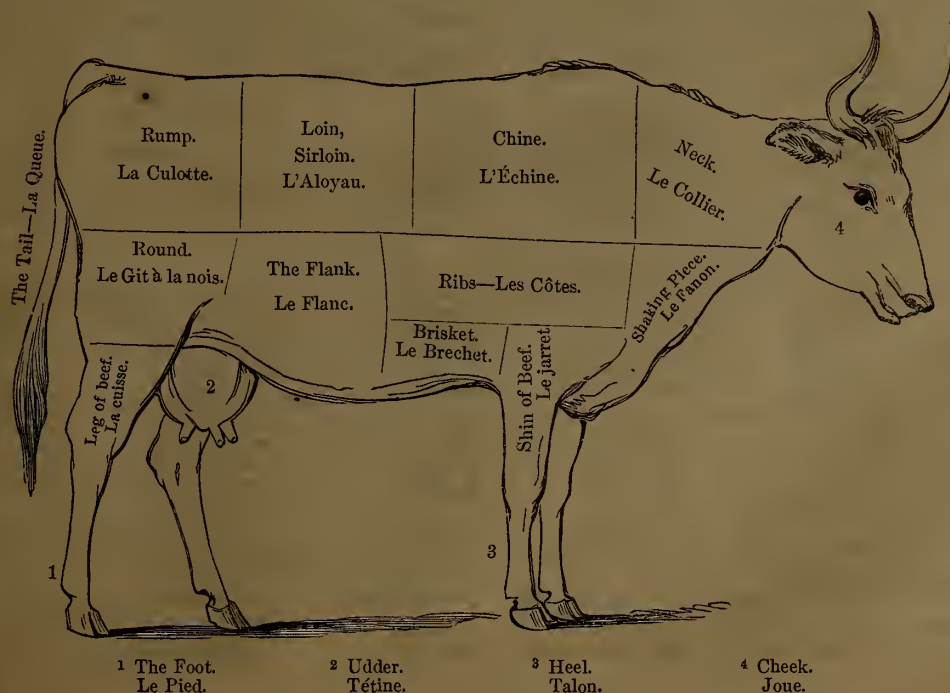 The Tail—La Queue.
Rump.
La Culotte.
Loin,
Sirloin.
L'Aloyau.
Chine.
L'Échine.
Neck.
Le Collier.
4
Round.
Le Git à la nois.
The Flank.
Le Flanc.
Ribs—Les Côtes.
Shaking Piece.
Le Fanon.
Brisket.
Le Brechet.
Shin of Beef.
Le jarret
Leg of beef.
La cuisse.
2
3
1
1 The Foot.
Le Pied.
2 Udder.
Tétine.
3 Heel.
Talon.
4 Cheek.
Joue.